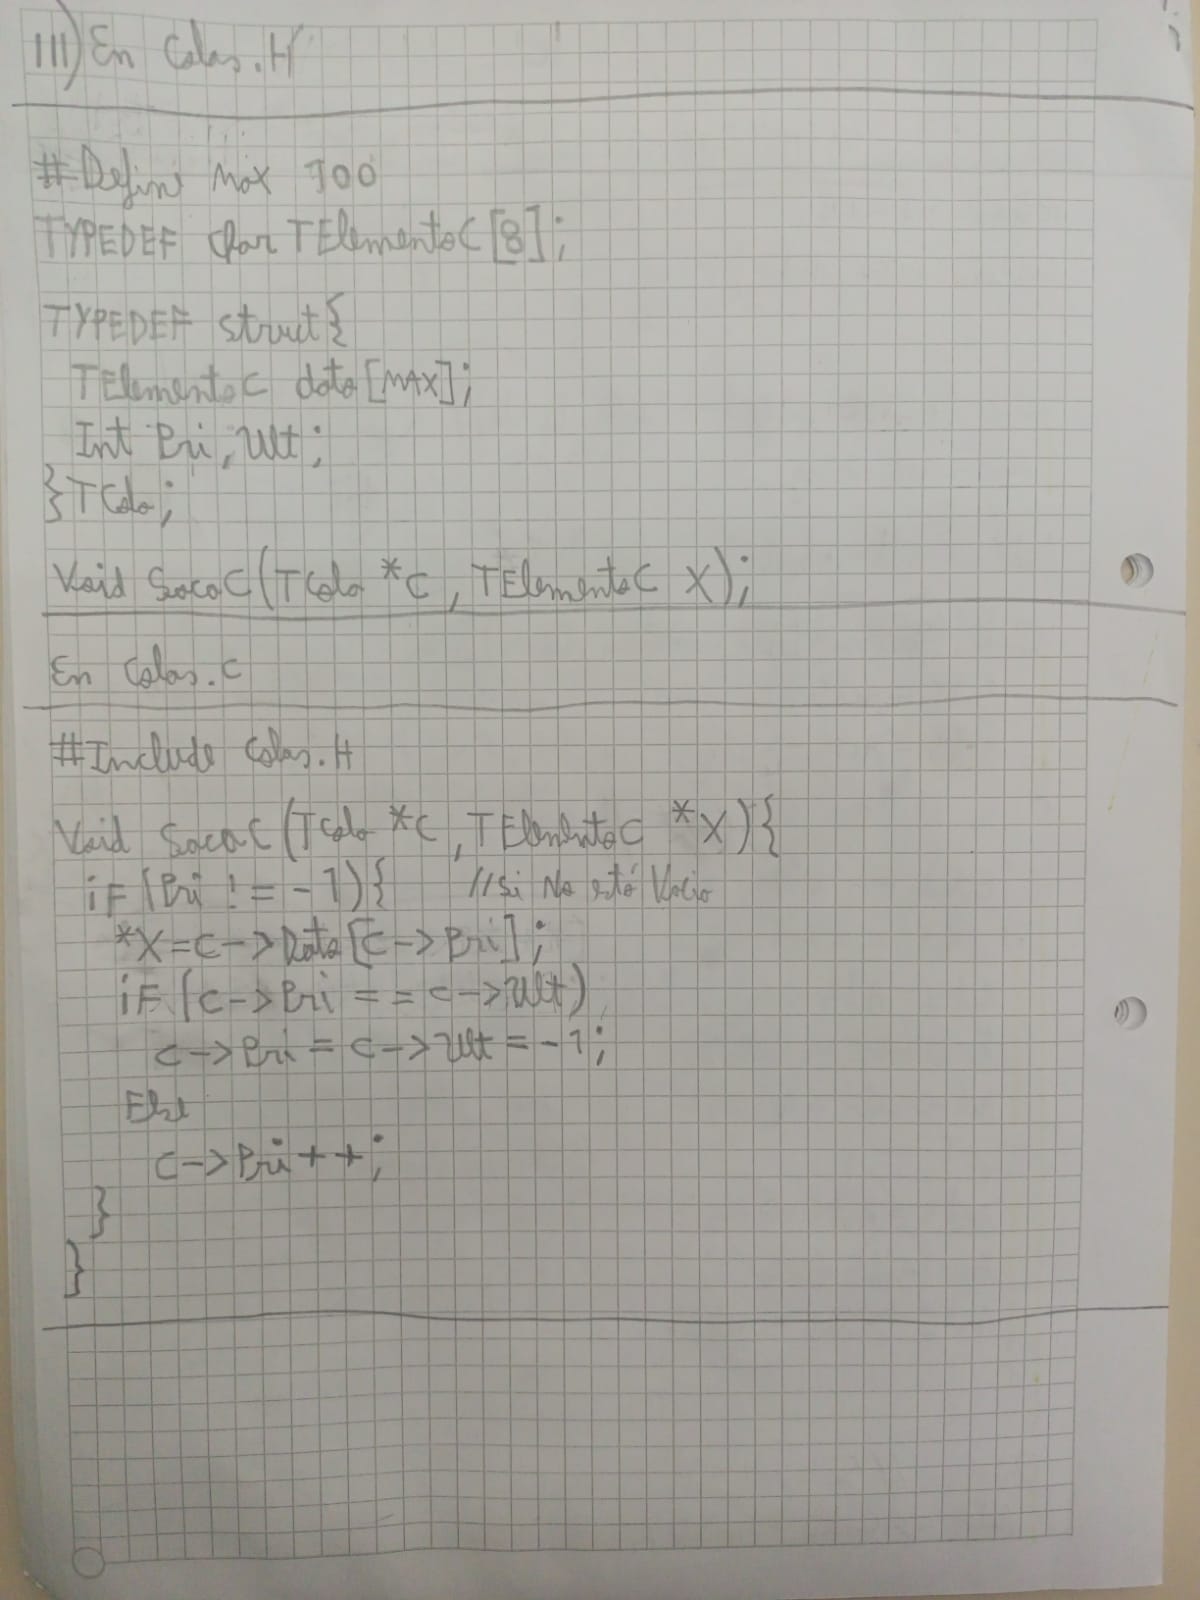 III) En Colas.H
#Define Max 100
TYPEDEF char TElementoC[8];
TYPEDEF struct{
TElementoC dato[MAX];
Int Pri, Ult;
}TCola;
Void SacaC(TCola *C, TElementoC X);
En Colas.C
#Include Colas.H
Void SacaC(TCola *C, TElementoC *X){
iF(Pri != -1){ //Si No está Vacia
*X=C->Dato[C->Pri];
iF(C->Pri == C->Ult)
C->Pri = C->Ult = -1;
Else
C->Pri++;
}
}